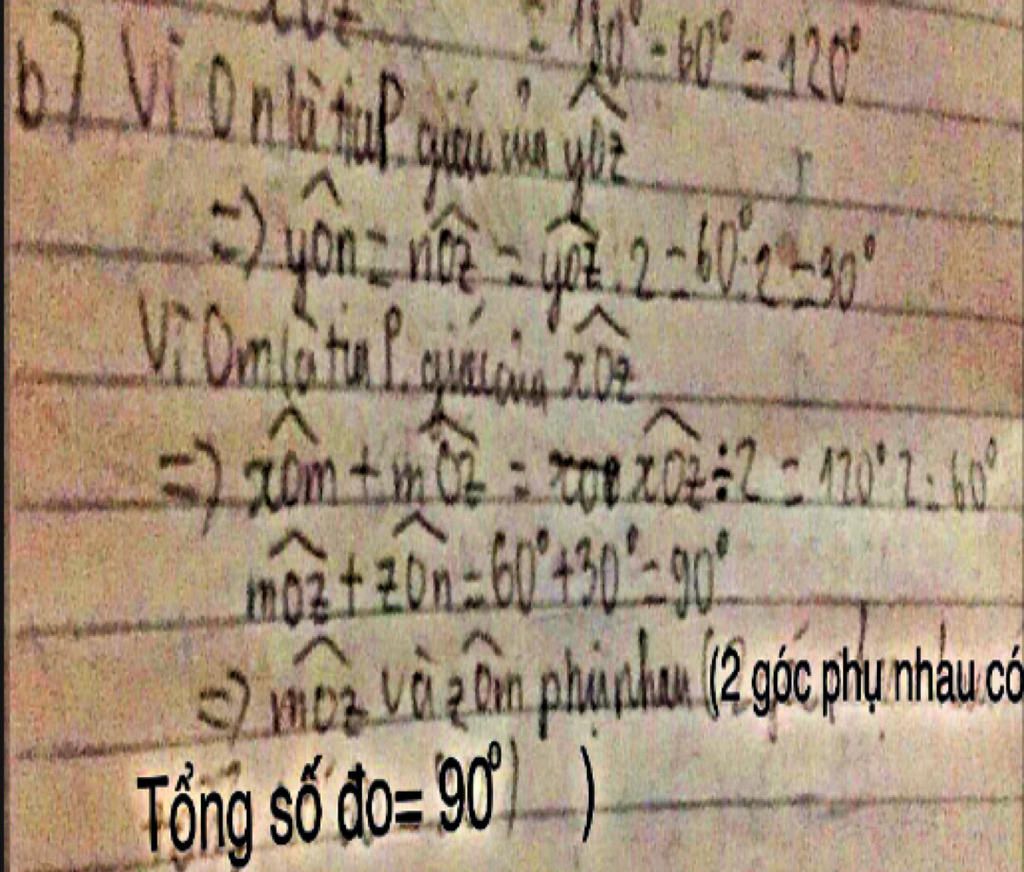 xOz = 180° - 60° = 120°
b) Vì On là tia P. giác của yOz
=> yOn = nOz = yOz : 2 = 60° : 2 = 30°
Vì Om là tia P. giác của xOz
=> xOm + mOz = xOz ÷ 2 = 120° : 2 = 60°
mOz + zOn = 60° + 30° = 90°
=> mOz và zOm phụ nhau (2 góc phụ nhau có
Tổng số đo= 90° )